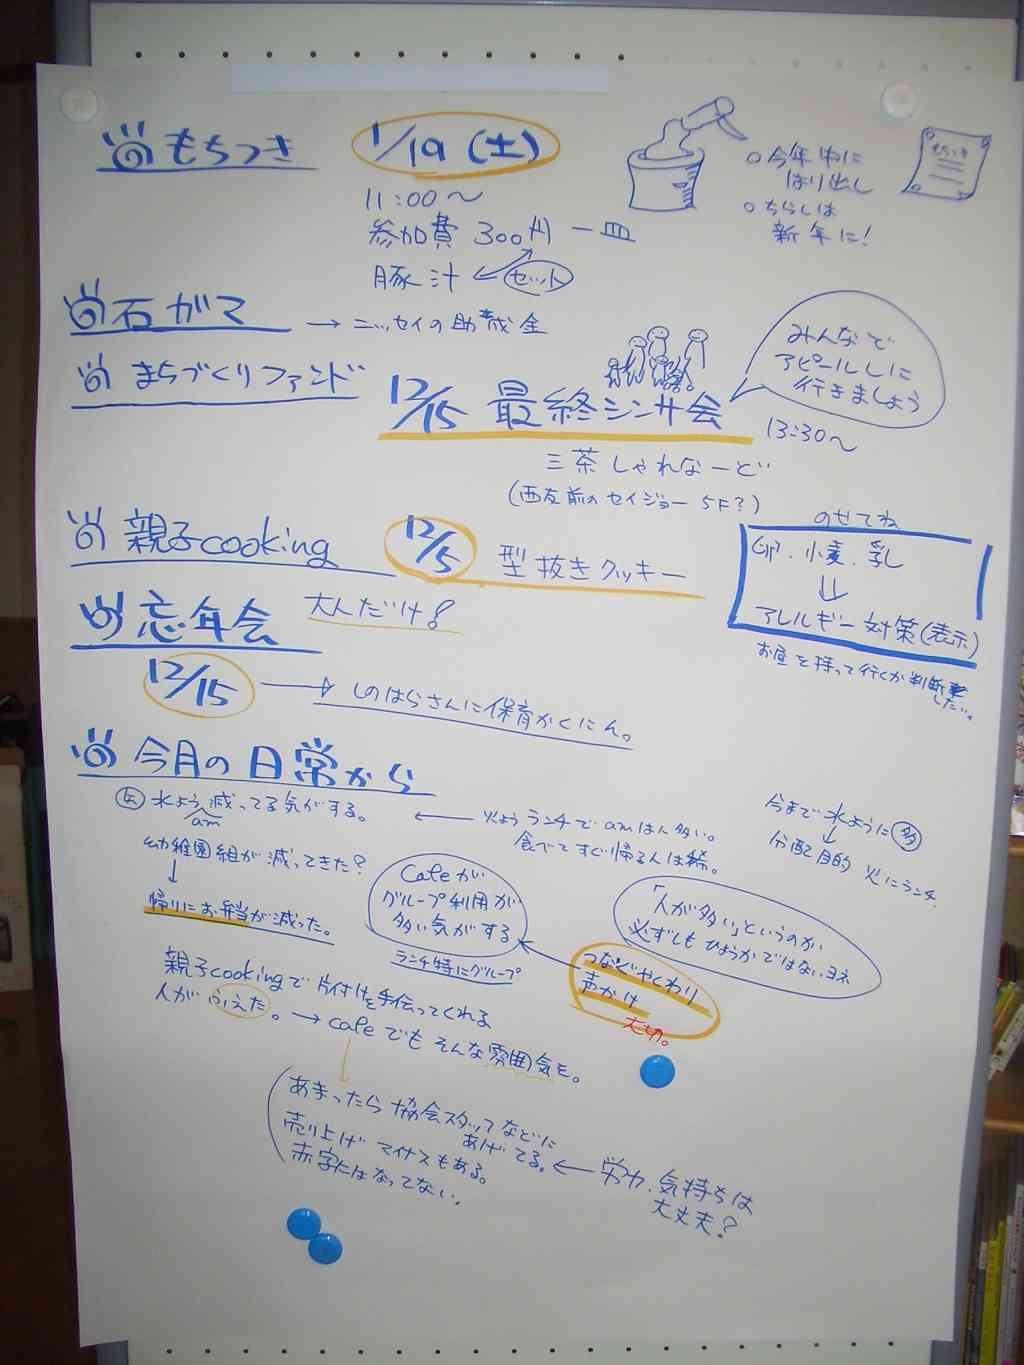 もちつき 1/19(土)
11:00〜
参加費 300円 一皿
豚汁 セット
○今年中に
はり出し
○ちらしは
新年に!
もちつき
石ガマ → ニッセイの助成金
まちづくりファンド
12/15 最終シンサ会
13:30〜
みんなで
アピールしに
行きましょう
三茶しゃれなーど
(西友前のセイジョー5F?)
親子cooking 12/5 型抜きクッキー
のせてね
卵、小麦、乳
アレルギー対策(表示)
お昼を持って行くか判断
したい。
忘年会 大人だけ?
12/15 → しのはらさんに保育かくにん。
今月の日常から
水よう減ってる気がする。
am
← 火ようランチでamは人多い。
食べてすぐ帰る人は稀。
今まで水ように多
↓
分配目的 火にランチ
幼稚園組が減ってきた?
↓
帰りにお弁当が減った。
Cafeが
グループ利用が
多い気がする
ランチ特にグループ
「人が多い」というのが
必ずしもひょうかではないヨネ
つなぐやくわり
声かけ
大切。
親子cookingで片付けを手伝ってくれる
人がふえた。→cafeでもそんな雰囲気を。
あまったら協会スタッフなどに
あげてる。
売り上げマイナスもある。
赤字にはなってない。
← 労力、気持ちは
大丈夫?